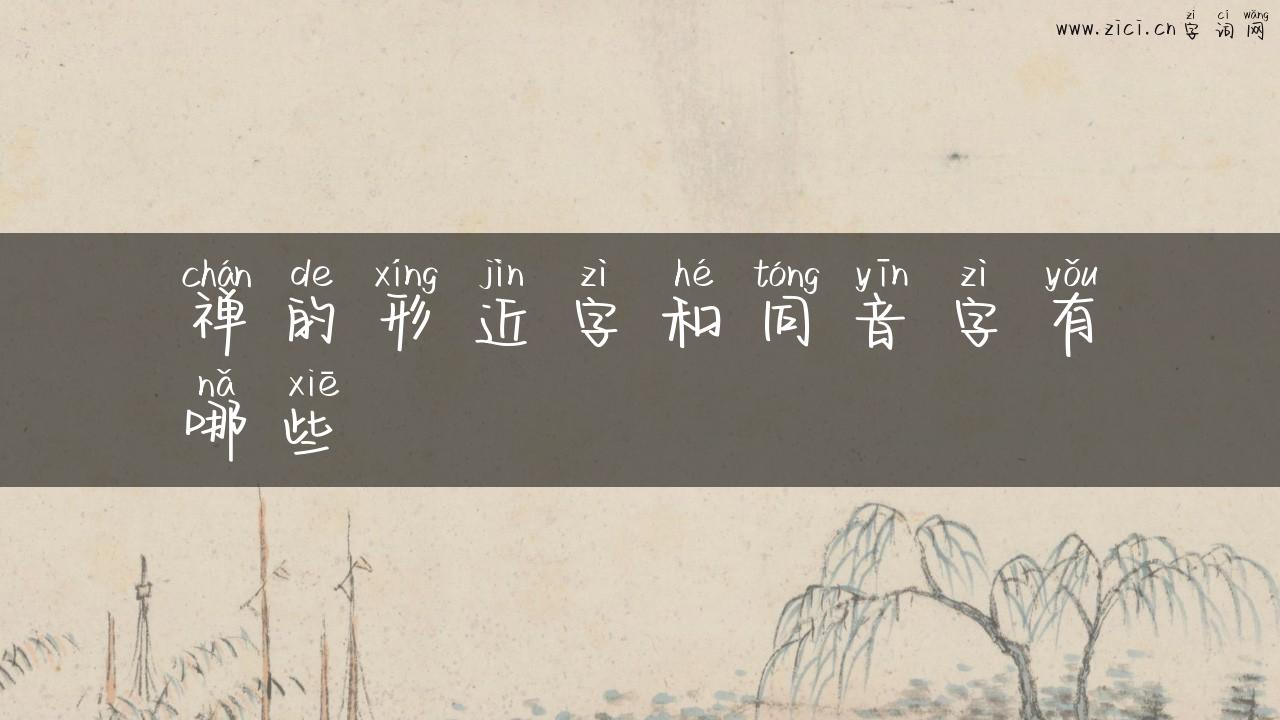 zì cí wǎng
www.zici.cn 字词网
chán de xíng jìn zì hé tóng yīn zì yǒu
禅的形近字和同音字有
nǎ xiē
哪些